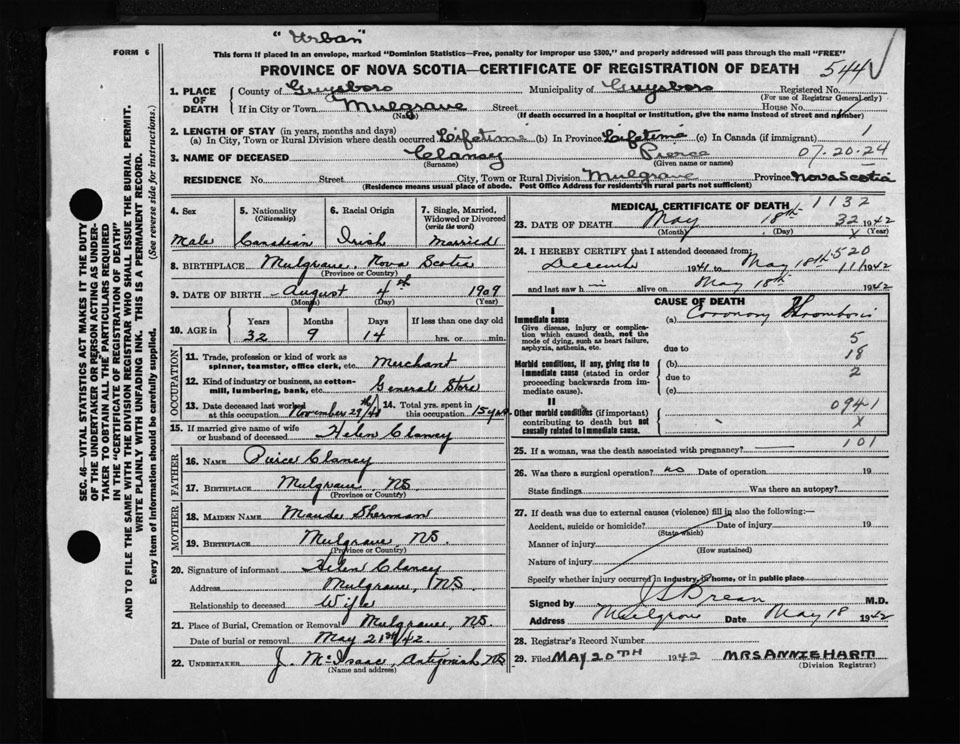 "Urban"
FORM 6
This form if placed in an envelope, marked "Dominion Statistics—Free, penalty for improper use $300," and properly addressed will pass through the mail "FREE"
PROVINCE OF NOVA SCOTIA—CERTIFICATE OF REGISTRATION OF DEATH 544
1. PLACE OF DEATH County of Guysboro Municipality of Guysboro Registered No.
(For use of Registrar General only)
If in City or Town Mulgrave Street House No.
(Name) (If death occurred in a hospital or institution, give its name instead of street and number)
2. LENGTH OF STAY (in years, months and days)
(a) In City, Town or Rural Division where death occurred Lifetime (b) In Province Lifetime (c) In Canada (if immigrant) 1
3. NAME OF DECEASED Clancy Pierce 07-20-24
(Surname) (Given name or names)
RESIDENCE No. Street City, Town or Rural Division Mulgrave Province Nova Scotia
(Residence means usual place of abode. Post Office Address for residents in rural parts not sufficient)
SEC. 46—VITAL STATISTICS ACT MAKES IT THE DUTY
OF THE UNDERTAKER OR PERSON ACTING AS UNDER-
TAKER TO OBTAIN ALL THE PARTICULARS REQUIRED
IN THE "CERTIFICATE OF REGISTRATION OF DEATH"
AND TO FILE THE SAME WITH THE DIVISION REGISTRAR WHO SHALL ISSUE THE BURIAL PERMIT.
WRITE PLAINLY WITH UNFADING INK. THIS IS A PERMANENT RECORD.
Every item of information should be carefully supplied. (See reverse side for instructions.)
4. Sex Male
5. Nationality (Citizenship) Canadian
6. Racial Origin Irish
7. Single, Married, Widowed or Divorced (write the word) Married
8. BIRTHPLACE Mulgrave, Nova Scotia
(Province or Country)
9. DATE OF BIRTH August 4th 1909
(Month) (Day) (Year)
10. AGE in Years Months Days If less than one day old
32 9 14 hrs. or min.
OCCUPATION
11. Trade, profession or kind of work as spinner, teamster, office clerk, etc. Merchant
12. Kind of industry or business, as cotton-mill, lumbering, bank, etc. General Store
13. Date deceased last worked at this occupation November 29th/41
14. Total yrs. spent in this occupation 15 yrs.
15. If married give name of wife or husband of deceased Helen Clancy
FATHER
16. NAME Pierce Clancy
17. BIRTHPLACE Mulgrave, NS
(Province or Country)
MOTHER
18. MAIDEN NAME Maude Sherman
19. BIRTHPLACE Mulgrave, NS.
(Province or Country)
20. Signature of informant Helen Clancy
Address Mulgrave, NS.
Relationship to deceased Wife
21. Place of Burial, Cremation or Removal Mulgrave, NS.
Date of burial or removal May 21st/42
22. UNDERTAKER J. McIsaac, Antigonish NS
(Name and address)
MEDICAL CERTIFICATE OF DEATH 1132
23. DATE OF DEATH May 18th 32 1942
(Month) (Day) (Year)
24. I HEREBY CERTIFY that I attended deceased from: 520
December 1941 to May 18th 1942
and last saw him alive on May 18th 1942
CAUSE OF DEATH
I
Immediate cause (a) Coronary Thrombosis
Give disease, injury or complication which caused death, not the mode of dying, such as heart failure, asphyxia, asthenia, etc. due to 5
Morbid conditions, if any, giving rise to immediate cause (stated in order proceeding backwards from immediate cause). (b) 18
due to 2
(c)
II
Other morbid conditions (if important) contributing to death but not causally related to immediate cause. 094-1
X
25. If a woman, was the death associated with pregnancy? 101
26. Was there a surgical operation? no Date of operation 19
State findings Was there an autopsy?
27. If death was due to external causes (violence) fill in also the following:—
Accident, suicide or homicide? Date of injury 19
(State which)
Manner of injury
(How sustained)
Nature of injury
Specify whether injury occurred in industry, in home, or in public place
Signed by M.D.
Address Mulgrave Date May 18 1942
28. Registrar's Record Number
29. Filed MAY 20TH 1942 MRS ANNIE HART
(Division Registrar)